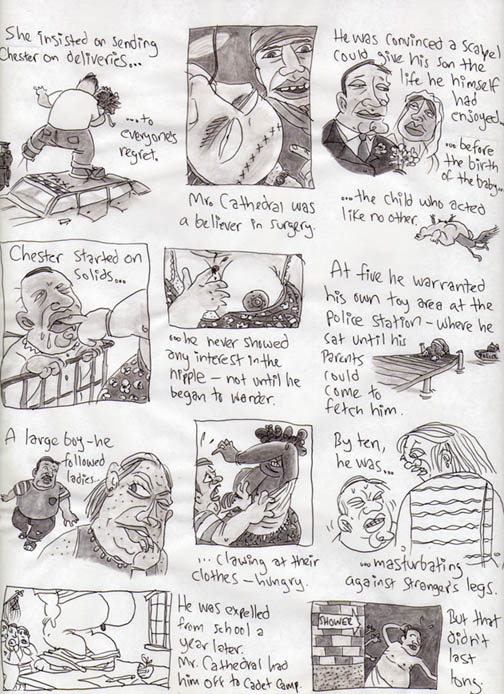 She insisted on sending
Chester on deliveries...
...to
everyone's
regret.
Mr. Cathedral was
a believer in surgery.
He was convinced a scalpel
could give his son the
life he himself
had
enjoyed...
...before
the birth
of the baby
...the child who acted
like no other.
Chester started on
solids...
...he never showed
any interest in the
nipple - not until he
began to wander.
At five he warranted
his own toy area at the
Police Station - where he
sat until his
Parents
could
come to
fetch him.
A large boy - he
followed
ladies...
... clawing at their
clothes - hungry.
By ten,
he was...
...masturbating
against stranger's legs.
He was expelled
from school a
year later.
Mr. Cathedral had
him off to Cadet Camp.
SHOWER
But that
didn't
last
long.